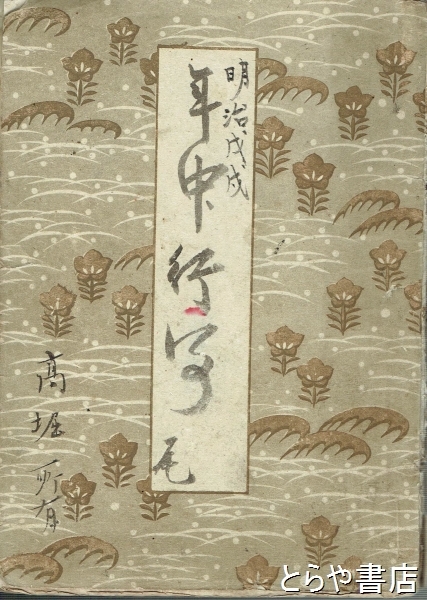 明治戊戌
年中行事
高堀所有
とらや書店